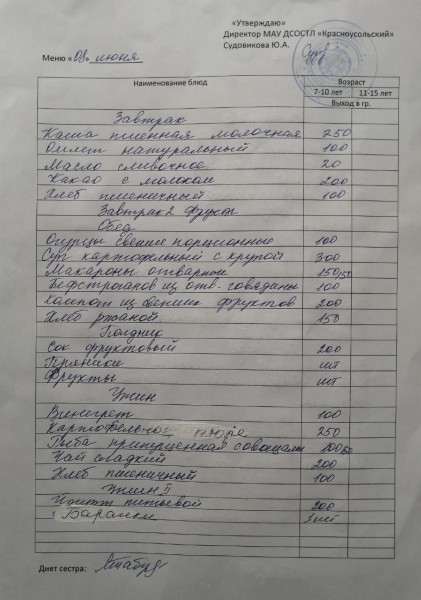 «Утверждаю»
Директор МАУ ДСОСТЛ «Красноусольский»
Судовикова Ю.А.
Меню «08» июня
Наименование блюд Возраст
7-10 лет 11-15 лет
Выход в гр.
Завтрак
Каша пшенная молочная 250
Омлет натуральный 100
Масло сливочное 20
Какао с молоком 200
Хлеб пшеничный 100
Завтрак 2 Фрукты
Обед
Огурцы свежие порционные 100
Суп картофельный с крупой 300
Макароны отварные 150/50
Бефстроганов из отв. говядины 100
Компот из свежих фруктов 200
Хлеб ржаной 150
Полдник
Сок фруктовый 200
Пряники шт
Фрукты шт
Ужин
Винегрет 100
Картофельное пюре 250
Рыба припущенная с овощами 100/50
Чай сладкий 200
Хлеб пшеничный 100
Ужин II
питьевой 200
Баранки 1шт
Диет сестра: